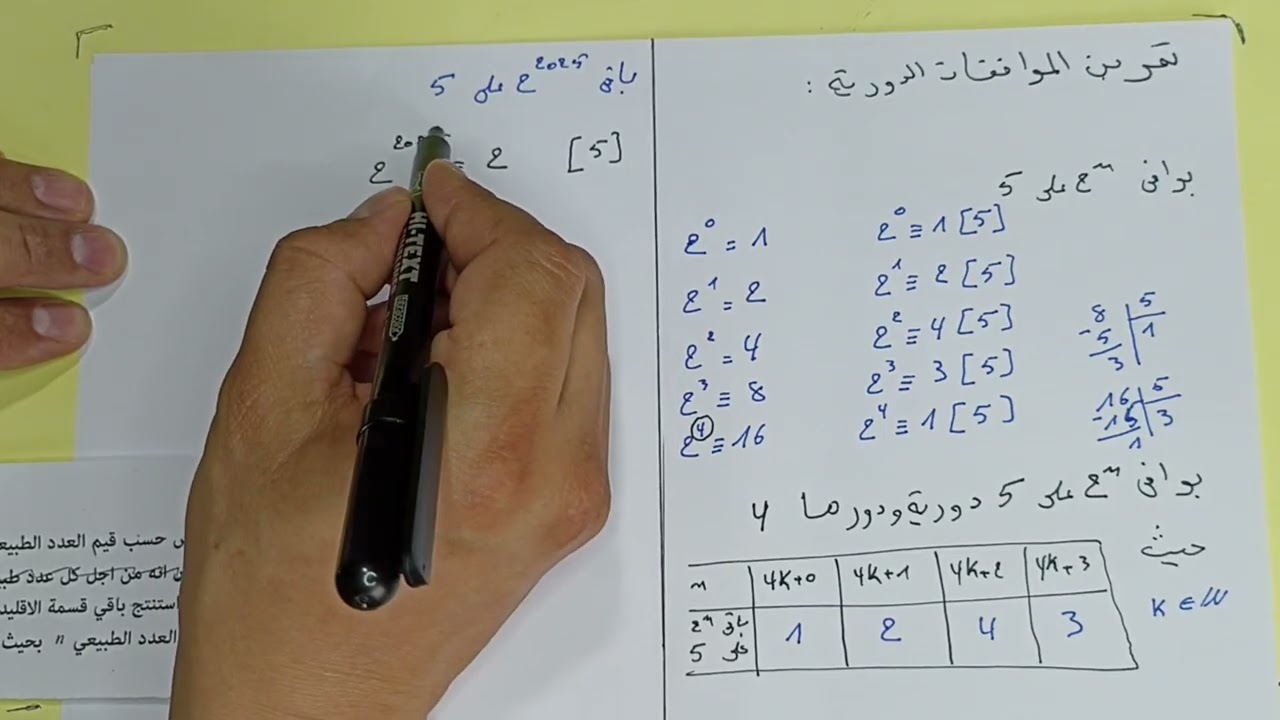 تمرين الموافقات الدورية :
بواقي 2ⁿ على 5
2⁰ = 1    2⁰ ≡ 1 [5]
2¹ = 2    2¹ ≡ 2 [5]
2² = 4    2² ≡ 4 [5]
2³ ≡ 8    2³ ≡ 3 [5]
2⁴ ≡ 16    2⁴ ≡ 1 [5]
8 5
-5 1
3
16 5
-15 3
1
بواقي 2ⁿ على 5 دورية ودورها 4
حيث
K ∈ IN
n 4K+0 4K+1 4K+2 4K+3
باقي 2ⁿ على 5 1 2 4 3
باقي 2²⁰²⁵ على 5
2²⁰ ≡ 2 [5]
HI-TEXT
حسب قيم العدد الطبيعـ
انه من اجل كل عدد طبيـ
استنتج باقي قسمة الاقليد
العدد الطبيعي n بحيث